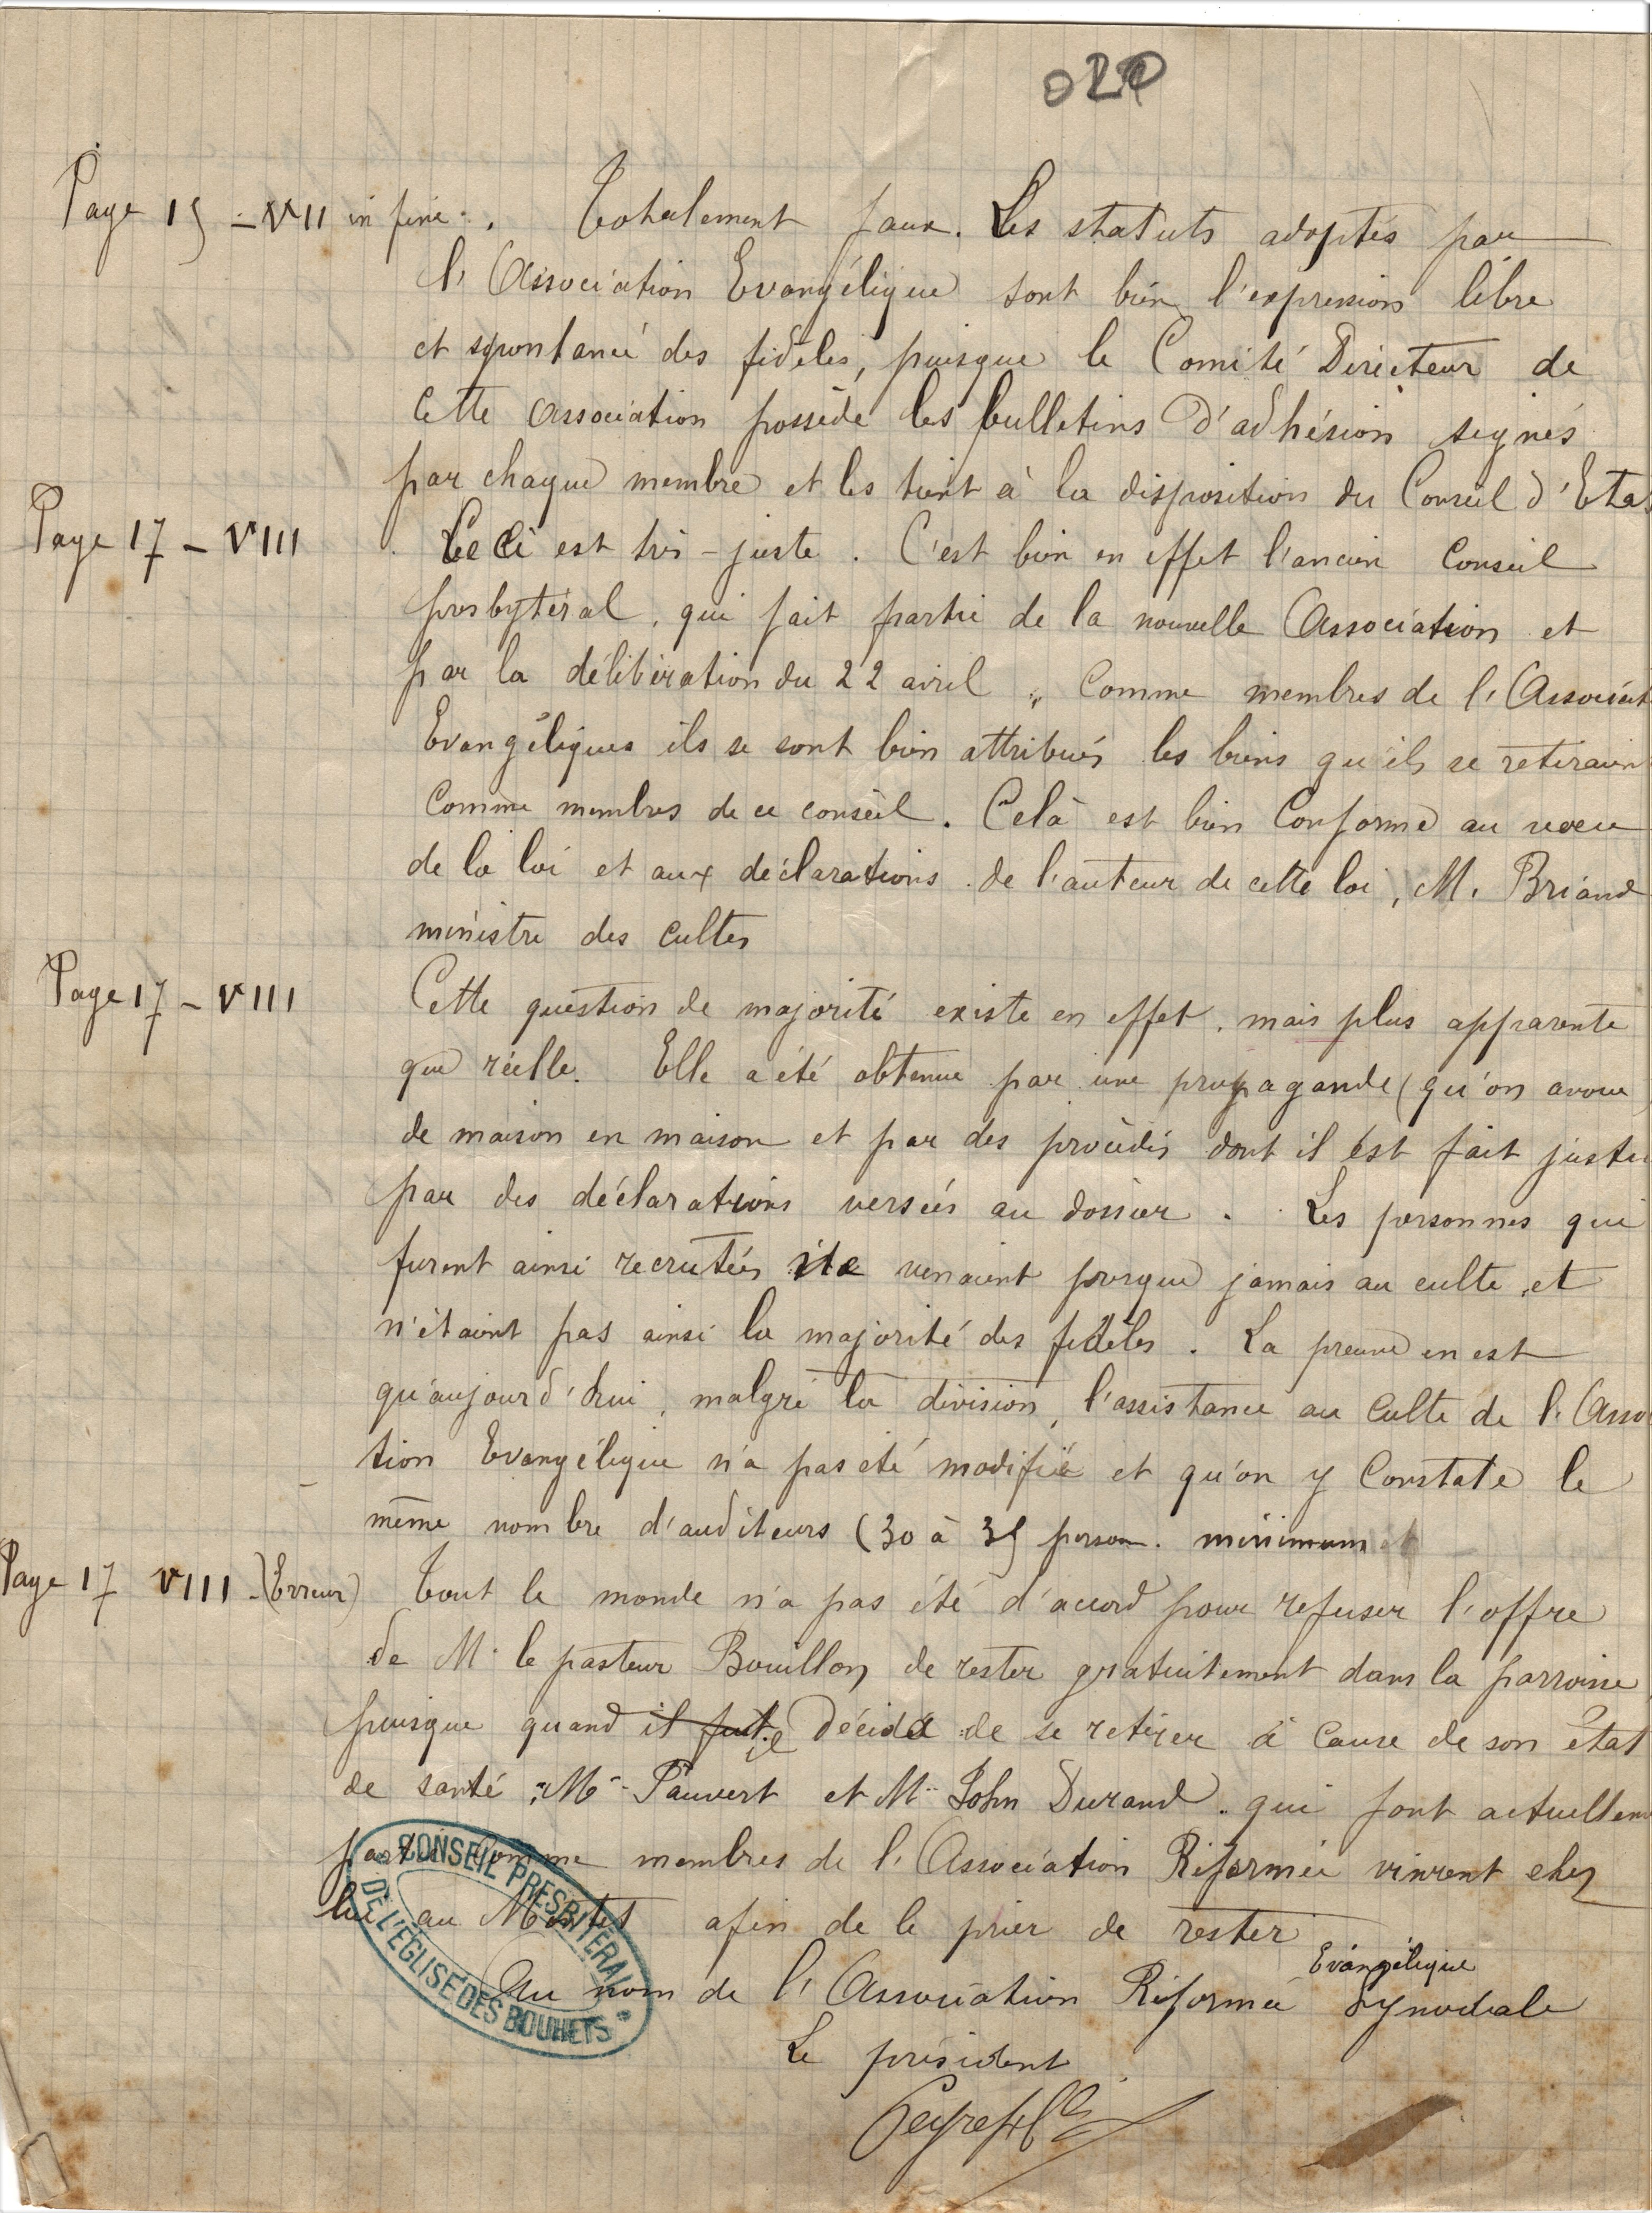 020
Page 15 - VII in fine. Totalement faux. Les statuts adoptés par
l'Association Evangélique sont bien l'expression libre
et spontanée des fidèles, puisque le Comité Directeur de
cette association possède les bulletins d'adhésion signés
par chaque membre et les tient à la disposition du Conseil d'Etat
Page 17 - VIII Ceci est très-juste. C'est bien en effet l'ancien Conseil
presbytéral, qui fait partie de la nouvelle Association et
par la délibération du 22 avril, comme membres de l'Associat
Evangéliques ils se sont bien attribués les biens qu'ils se retiraient
comme membres de ce conseil. Celà est bien conforme au voeu
de la loi et aux déclarations de l'auteur de cette loi, M. Briand
ministre des cultes
Page 17 - VIII Cette question de majorité existe en effet, mais plus apparente
que réelle. Elle a été obtenue par une propagande (qu'on avoue)
de maison en maison et par des procédés dont il est fait justice
par des déclarations versées au dossier. Les personnes qui
furent ainsi recrutées ne venaient presque jamais au culte, et
n'étaient pas ainsi la majorité des fidèles. La preuve en est
qu'aujourd'hui, malgré la division, l'assistance au culte de l'Asso
tion Evangélique n'a pas été modifiée et qu'on y constate le
même nombre d'auditeurs (30 à 35 person. minimum
Page 17 VIII - (Erreur) Tout le monde n'a pas été d'accord pour refuser l'offre
de M. le pasteur Bouillon de rester gratuitement dans la parroisse
puisque quand il fut décidé de se retirer à cause de son état
de santé, Mr Pauvert et Mr John Durand qui font actuellem
partie comme membres de l'Association Réformée vinrent chez
lui au afin de le prier de rester
Au nom de l'Association Réformée Evangélique Synodale
Le président
CONSEIL PRESBITÉRAL
DE L'ÉGLISE DES BOUHETS